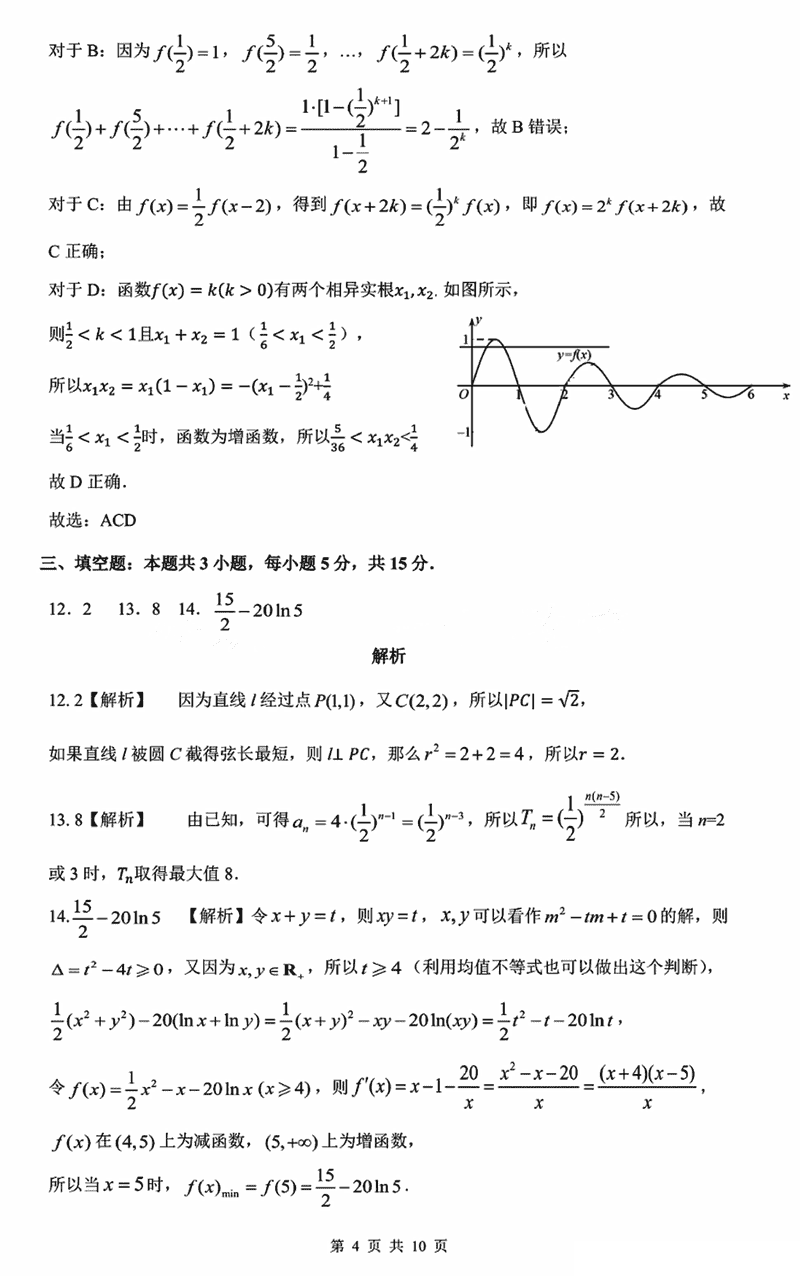 对于 B：因为 f(1/2)=1，f(5/2)=1/2，…，f(1/2+2k)=(1/2)^k，所以
f(1/2)+f(5/2)+⋯+f(1/2+2k)=1·[1−(1/2)^{k+1}]/(1−1/2)=2−1/2^k，故 B 错误；
对于 C：由 f(x)=1/2 f(x−2)，得到 f(x+2k)=(1/2)^k f(x)，即 f(x)=2^k f(x+2k)，故
C 正确；
对于 D：函数f(x) = k(k > 0)有两个相异实根x₁, x₂. 如图所示，
则1/2 < k < 1且x₁ + x₂ = 1（1/6 < x₁ < 1/2），
所以x₁x₂ = x₁(1 − x₁) = −(x₁ − 1/2)²+1/4
当1/6 < x₁ < 1/2时，函数为增函数，所以5/36 < x₁x₂<1/4
y
1
y=f(x)
O 1 2 3 4 5 6 x
−1
故 D 正确.
故选：ACD
三、填空题：本题共 3 小题，每小题 5 分，共 15 分.
12．2 13．8 14．15/2−20ln5
解析
12. 2【解析】 因为直线 l 经过点 P(1,1)，又 C(2,2)，所以|PC| = √2，
如果直线 l 被圆 C 截得弦长最短，则 l⊥ PC，那么 r²=2+2=4，所以r = 2.
13. 8【解析】 由已知，可得 aₙ=4·(1/2)^{n−1}=(1/2)^{n−3}，所以 Tₙ=(1/2)^{n(n−5)/2} 所以，当 n=2
或 3 时，Tₙ取得最大值 8.
14. 15/2−20ln5 【解析】令 x+y=t，则 xy=t，x,y 可以看作 m²−tm+t=0 的解，则
Δ=t²−4t⩾0，又因为 x,y∈R₊，所以 t⩾4（利用均值不等式也可以做出这个判断），
1/2(x²+y²)−20(ln x+ln y)=1/2(x+y)²−xy−20ln(xy)=1/2t²−t−20ln t，
令 f(x)=1/2x²−x−20ln x (x⩾4)，则 f′(x)=x−1−20/x=(x²−x−20)/x=(x+4)(x−5)/x，
f(x) 在 (4,5) 上为减函数，(5,+∞) 上为增函数，
所以当 x=5 时，f(x)min=f(5)=15/2−20ln5.
第 4 页 共 10 页